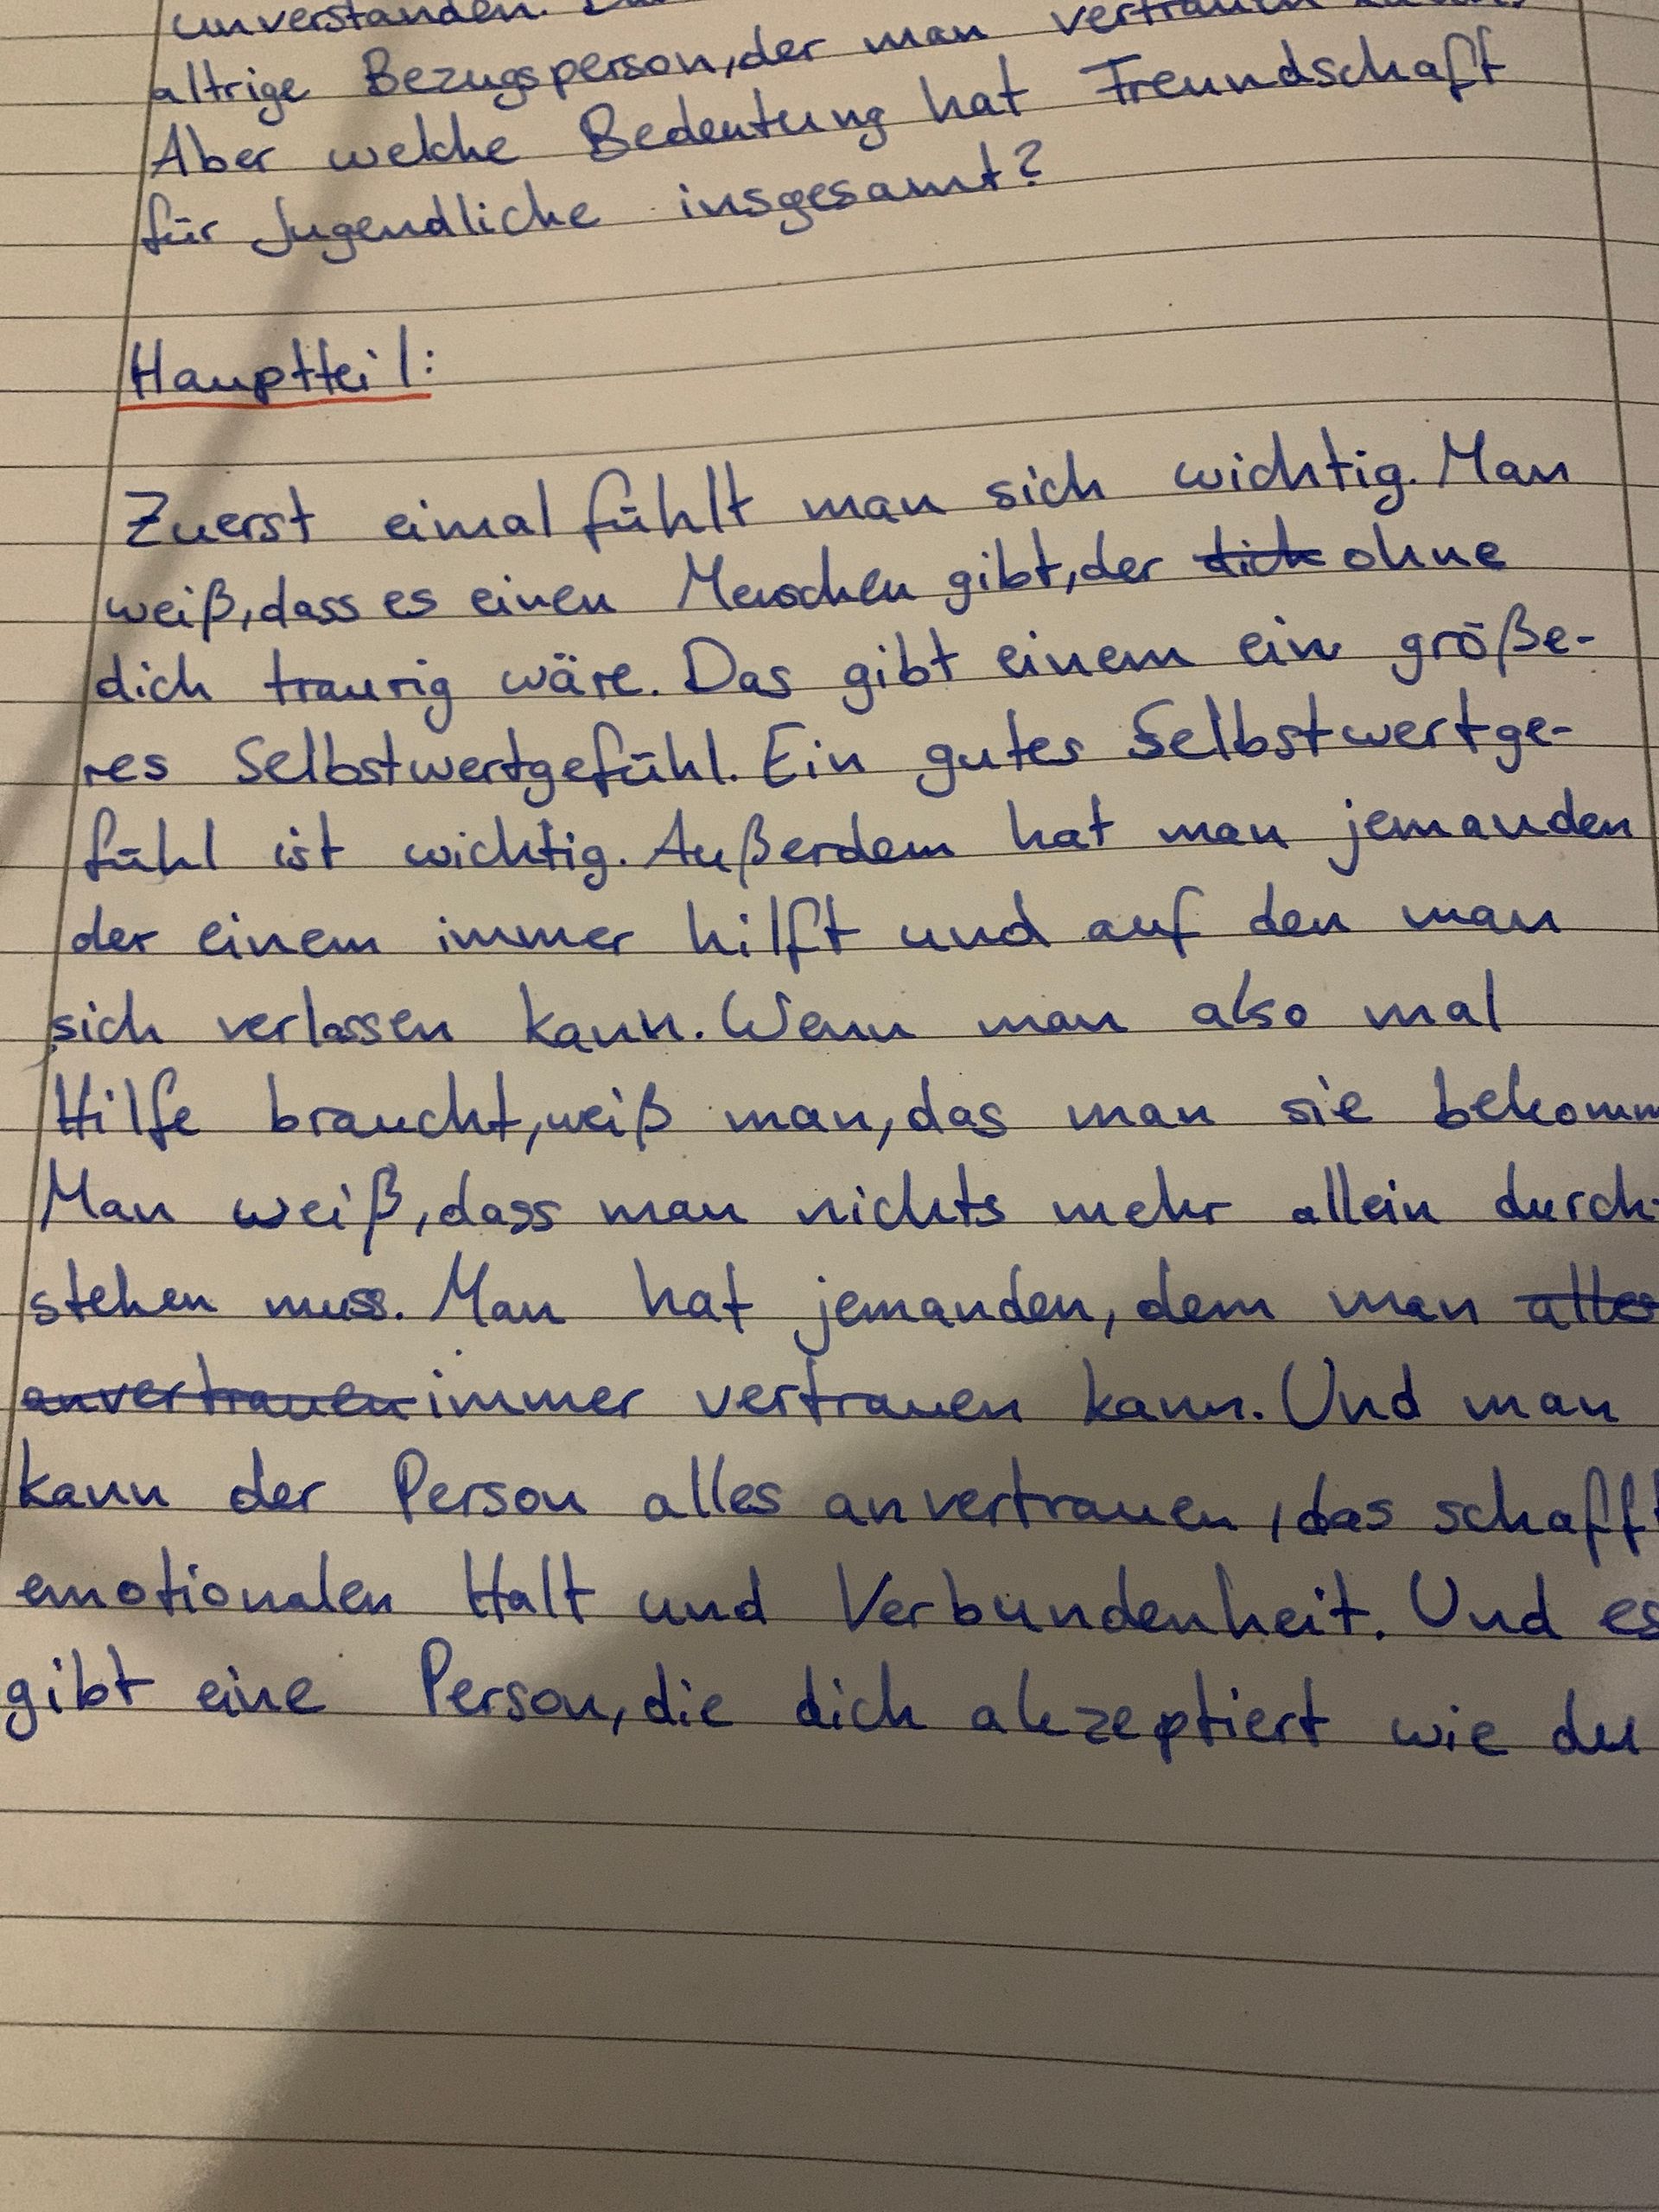 unverstanden.
altrige Bezugsperson, der man vertrauen
Aber welche Bedeutung hat Freundschaft
für Jugendliche insgesamt?
Hauptteil:
Zuerst eimal fühlt man sich wichtig. Man
weiß, dass es einen Menschen gibt, der dich ohne
dich traurig wäre. Das gibt einem ein größe-
res Selbstwertgefühl. Ein gutes Selbstwertge-
fühl ist wichtig. Außerdem hat man jemanden
der einem immer hilft und auf den man
sich verlassen kann. Wenn man also mal
Hilfe braucht, weiß man, das man sie bekomm
Man weiß, dass man nichts mehr allein durch-
stehen muss. Man hat jemanden, dem man alles
anvertrauen immer vertrauen kann. Und man
kann der Person alles anvertrauen, das schafft
emotionalen Halt und Verbundenheit. Und es
gibt eine Person, die dich akzeptiert wie du